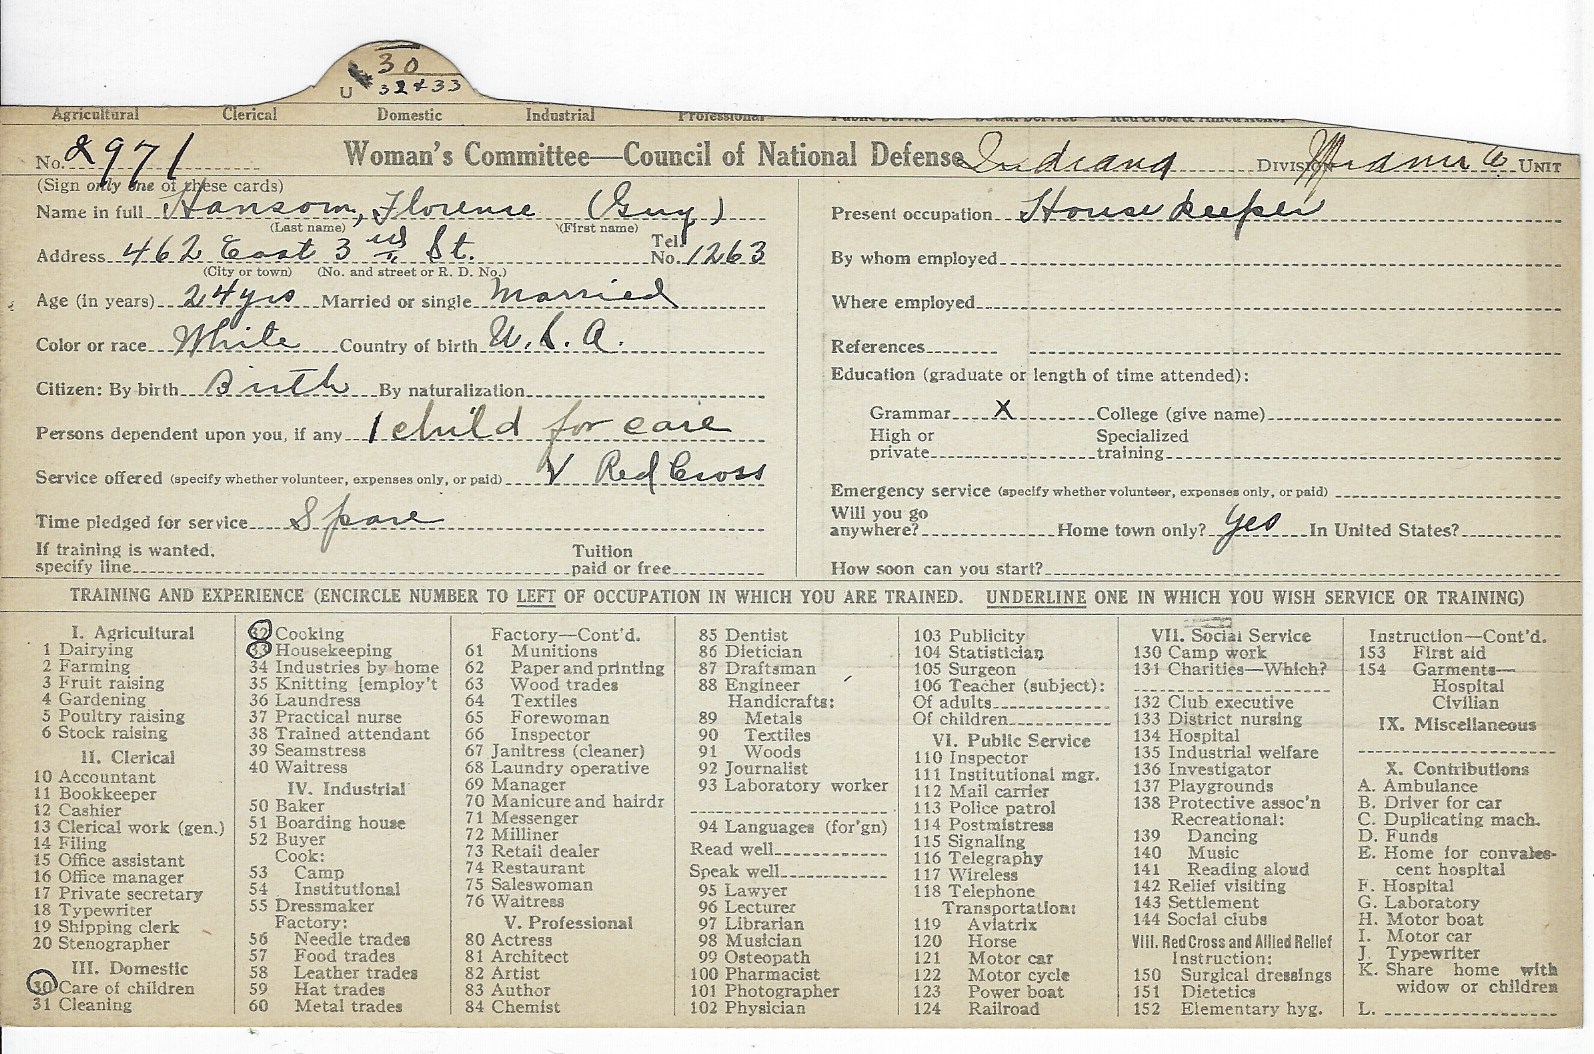 30
U 32 + 33
Agricultural Clerical Domestic Industrial Professional Public Service Social Service Red Cross & Allied Relief
No. 2971 Woman's Committee—Council of National Defense Indiana Division Miami Co Unit
(Sign only one of these cards)
Name in full Hansom, Florence (Guy)
(Last name) (First name)
Address 462 East 3rd St. Tel. No. 1263
(City or town) (No. and street or R. D. No.)
Age (in years) 24 yrs Married or single Married
Color or race White Country of birth U.S.A.
Citizen: By birth Birth By naturalization
Persons dependent upon you, if any 1 child for care
Service offered (specify whether volunteer, expenses only, or paid) V Red Cross
Time pledged for service Spare
If training is wanted, specify line Tuition paid or free
Present occupation House keeper
By whom employed
Where employed
References
Education (graduate or length of time attended):
Grammar X College (give name)
High or private Specialized training
Emergency service (specify whether volunteer, expenses only, or paid)
Will you go anywhere? Home town only? Yes In United States?
How soon can you start?
TRAINING AND EXPERIENCE (ENCIRCLE NUMBER TO LEFT OF OCCUPATION IN WHICH YOU ARE TRAINED. UNDERLINE ONE IN WHICH YOU WISH SERVICE OR TRAINING)
I. Agricultural
1 Dairying
2 Farming
3 Fruit raising
4 Gardening
5 Poultry raising
6 Stock raising
II. Clerical
10 Accountant
11 Bookkeeper
12 Cashier
13 Clerical work (gen.)
14 Filing
15 Office assistant
16 Office manager
17 Private secretary
18 Typewriter
19 Shipping clerk
20 Stenographer
III. Domestic
30 Care of children
31 Cleaning
32 Cooking
33 Housekeeping
34 Industries by home
35 Knitting [employ't
36 Laundress
37 Practical nurse
38 Trained attendant
39 Seamstress
40 Waitress
IV. Industrial
50 Baker
51 Boarding house
52 Buyer
Cook:
53 Camp
54 Institutional
55 Dressmaker
Factory:
56 Needle trades
57 Food trades
58 Leather trades
59 Hat trades
60 Metal trades
Factory—Cont'd.
61 Munitions
62 Paper and printing
63 Wood trades
64 Textiles
65 Forewoman
66 Inspector
67 Janitress (cleaner)
68 Laundry operative
69 Manager
70 Manicure and hairdr
71 Messenger
72 Milliner
73 Retail dealer
74 Restaurant
75 Saleswoman
76 Waitress
V. Professional
80 Actress
81 Architect
82 Artist
83 Author
84 Chemist
85 Dentist
86 Dietician
87 Draftsman
88 Engineer
Handicrafts:
89 Metals
90 Textiles
91 Woods
92 Journalist
93 Laboratory worker
94 Languages (for'gn)
Read well
Speak well
95 Lawyer
96 Lecturer
97 Librarian
98 Musician
99 Osteopath
100 Pharmacist
101 Photographer
102 Physician
103 Publicity
104 Statistician
105 Surgeon
106 Teacher (subject):
Of adults
Of children
VI. Public Service
110 Inspector
111 Institutional mgr.
112 Mail carrier
113 Police patrol
114 Postmistress
115 Signaling
116 Telegraphy
117 Wireless
118 Telephone
Transportation:
119 Aviatrix
120 Horse
121 Motor car
122 Motor cycle
123 Power boat
124 Railroad
VII. Social Service
130 Camp work
131 Charities—Which?
132 Club executive
133 District nursing
134 Hospital
135 Industrial welfare
136 Investigator
137 Playgrounds
138 Protective assoc'n
Recreational:
139 Dancing
140 Music
141 Reading aloud
142 Relief visiting
143 Settlement
144 Social clubs
VIII. Red Cross and Allied Relief
Instruction:
150 Surgical dressings
151 Dietetics
152 Elementary hyg.
Instruction—Cont'd.
153 First aid
154 Garments—
Hospital
Civilian
IX. Miscellaneous
X. Contributions
A. Ambulance
B. Driver for car
C. Duplicating mach.
D. Funds
E. Home for convales-
cent hospital
F. Hospital
G. Laboratory
H. Motor boat
I. Motor car
J. Typewriter
K. Share home with
widow or children
L.